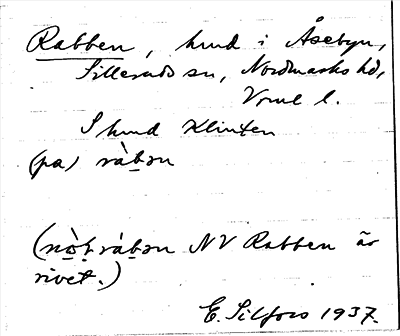 Rabben, hmd i Åsebyn,
Sillerud sn, Nordmarks hd,
Vrml l.
I hmd Klinten
(pa) ràbən
(nò̩ṛ ràbən NV Rabben är
rivet.)
E. Silfors 1937.